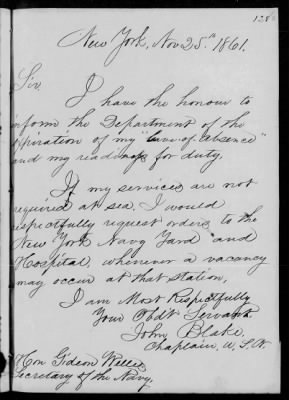 New York, Nov 25.th 1861.
Sir,
I have the honour to
inform the Department of the
expiration of my "leave of absence"
and my readiness for duty.
If my services are not
required at sea. I would
respectfully request orders to the
New York Navy Yard and
Hospital, whenever a vacancy
may occur at that station,
I am Most Respectfully
Your Obdt Servant
John Blake,
Chaplain, U.S.N.
Hon Gideon Welles
Secretary of the Navy.